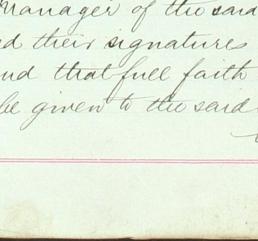 Manager of the said
ed their signatures
and that full faith
be given to the said